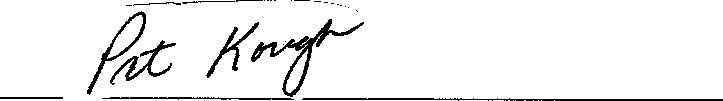 Pat Keough